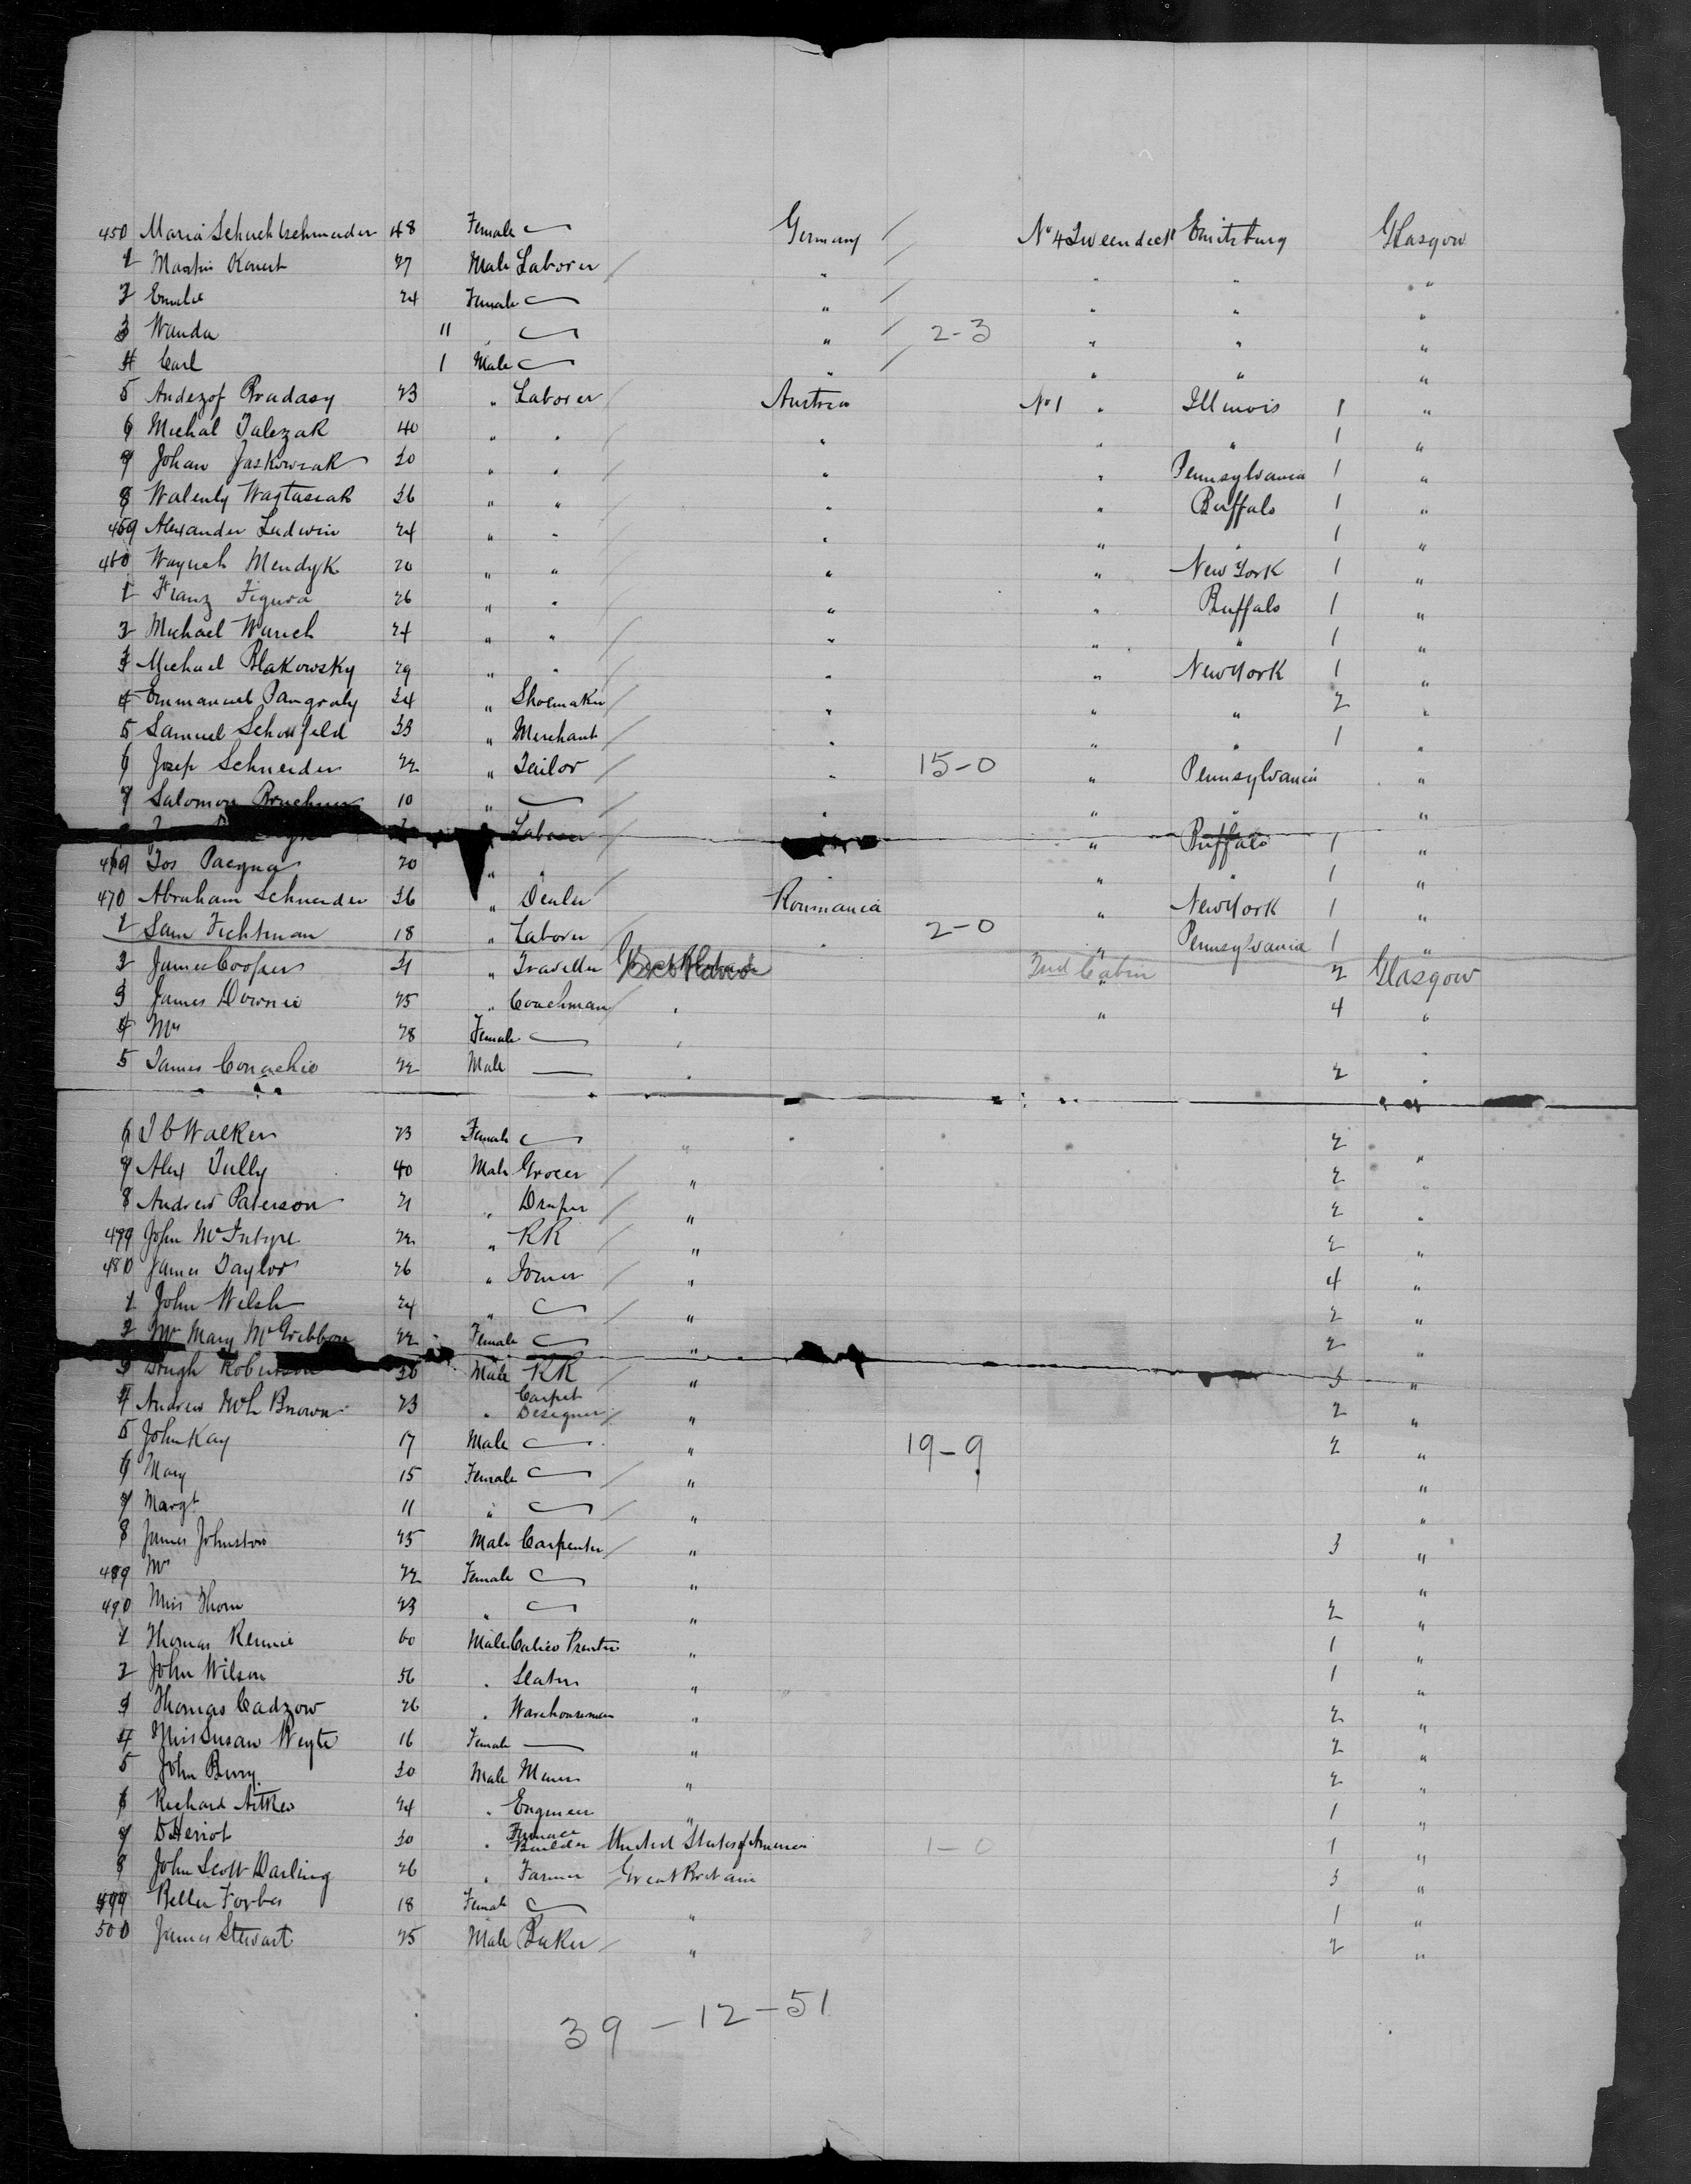 450 Maria Schuchtschneider 48 Female Germany No 4 Tweendeck Emitsburg Glasgow
1 Martin Konert 27 Male Laborer " " " "
2 Emilie 24 Female " " " "
3 Wanda 11 " " 2-3 " " "
4 Carl 1 Male " " " "
5 Andezof Brudasy 23 " Laborer Austria No 1 " Illinois 1 "
6 Michal Talczak 40 " " " " " 1 "
7 Johan Jaskowsak 30 " " " " Pennsylvania 1 "
8 Walenly Wagtasiak 36 " " " " Buffalo 1 "
459 Alexander Ludwin 24 " " " " " 1 "
460 Waynch Mendyk 20 " " " " New York 1 "
1 Franz Figura 26 " " " " Buffalo 1 "
2 Michael Warich 24 " " " " " 1 "
3 Michael Blakowsky 29 " " " " New York 1 "
4 Emmanuel Pangraly 34 " Shoemaker " " " 2 "
5 Samuel Schonfeld 33 " Merchant " " " 1 "
6 Josep Schneider 22 " Tailor " 15-0 " Pennsylvania "
7 Salomon Bruchner 10 " " " " "
Laborer " Buffalo 1 "
469 Jos Pacyna 20 " " " " " 1 "
470 Abraham Schneider 36 " Dealer Roumania " New York 1 "
1 Sam Fichtman 18 " Laborer " 2-0 " Pennsylvania 1 "
2 James Cooper 31 " Traveller 2nd Cabin 2 Glasgow
3 James Downie 25 " Coachman " " 4 "
4 Mrs 28 Female " "
5 James Conachie 22 Male " 2 "
6 J C Walker 23 Female " 2 "
7 Alex Tully 40 Male Grocer " 2 "
8 Andrew Paterson 21 " Draper " 2 "
479 John McIntyre 22 " RR " 2 "
480 James Taylor 26 " Joiner " 4 "
1 John Welsh 24 " " 2 "
2 Mrs Mary McGribbon 22 Female " 2 "
3 Hugh Robertson 30 Male RR " 3 "
4 Andrew McL Brown 23 " Carpet Designer " 2 "
5 John Kay 17 Male " 19-9 2 "
6 Mary 15 Female " "
7 Margt 11 " " "
8 James Johnston 25 Male Carpenter " 3 "
489 Mrs 22 Female " "
490 Miss Thom 23 " " 2 "
1 Thomas Rennie 60 Male Calico Printer " 1 "
2 John Wilson 56 " Slater " 1 "
3 Thomas Cadzow 26 " Warehouseman " 2 "
4 Miss Susan Weyte 16 Female " 2 "
5 John Bury 30 Male Miner " 2 "
6 Richard Aitken 24 " Engineer " 1 "
7 D Heriot 30 " Furnace Builder United States of America 1-0 1 "
8 John Scott Darling 26 " Farmer Great Britain 3 "
499 Bella Forbes 18 Female " 1 "
500 James Stewart 25 Male Baker " 2 "
39-12-51